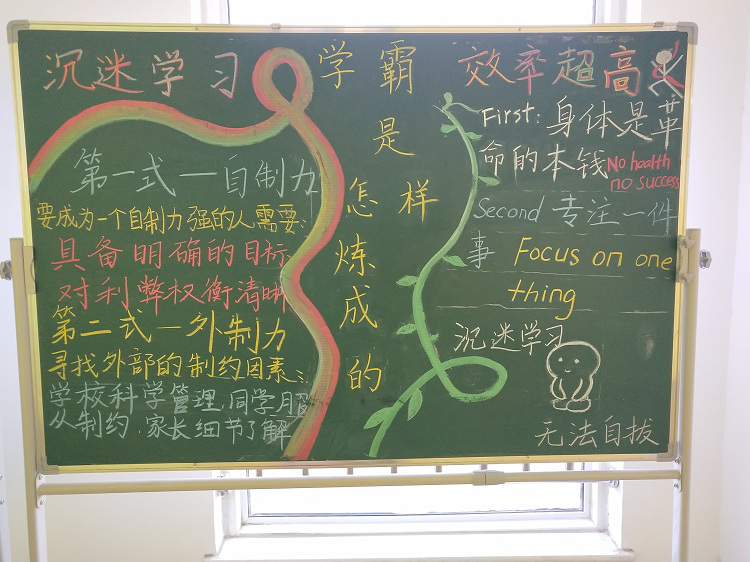 沉迷学习
第一式一自制力
要成为一个自制力强的人需要:
具备明确的目标
对利弊权衡清晰
第二式一外制力
寻找外部的制约因素:
学校科学管理.同学月
从制约.家长细节了解
学霸
是
怎样
炼
成
的
效率超高
First: 身体是革
命的本钱 No health
no success
Second 专注一件
事 Focus on one
thing
沉迷学习
无法自拔